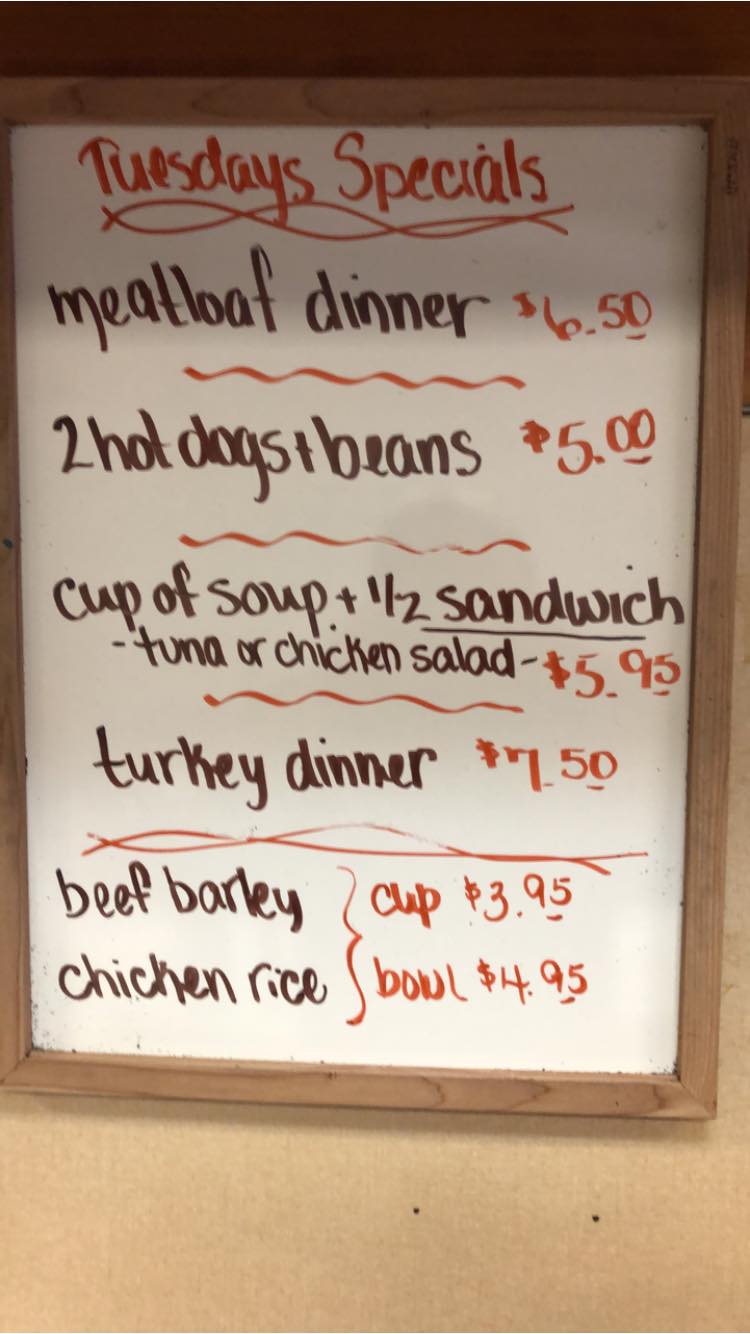 Tuesdays Specials
meatloaf dinner $6.50
2 hot dogs + beans $5.00
cup of soup + 1/2 sandwich
-tuna or chicken salad- $5.95
turkey dinner $7.50
beef barley } cup $3.95
chicken rice } bowl $4.95